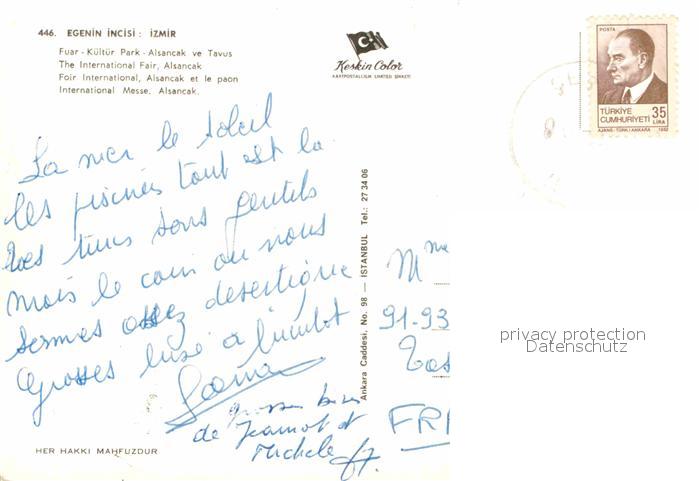 446. EGENİN İNCİSİ : İZMİR
Fuar - Kültür Park - Alsancak ve Tavus
The International Fair, Alsancak
Foir International, Alsancak et le paon
International Messe, Alsancak.
Keskin Color
KARTPOSTALCILIK LIMITED ŞIRKETI
POSTA
TÜRKİYE
CUMHURİYETİ 35
LIRA
AJANS-TÜRK/ANKARA 1982
La mer le soleil
les piscines tout est la
les turcs sont gentils
mais le coin ou nous
sommes assez desertique
Grosses bises a
grosses bises
de Jeannot et
Michele
Ankara Caddesi, No. 98 — ISTANBUL Tel.: 27 34 06
Mme
91-93
FR
HER HAKKI MAHFUZDUR
privacy protection
Datenschutz